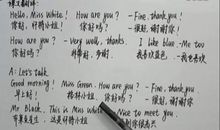 Hello, Miss White! How are you? - Fine, thank you!
你好, 怀特小姐! 你好吗? - 很好, 谢谢你!
How are you? - Very well, thanks. I like blue. Me too
你好吗? 我喜欢蓝色.
A: Let's talk
Good morning! Miss Green. How are you? - Fine, thank you!
早上好! 格林小姐, 你好吗? - 很好, 谢谢你
Mr Black, This is Miss White Nice to meet you.
布莱克先生, 这是怀特小姐 很高兴